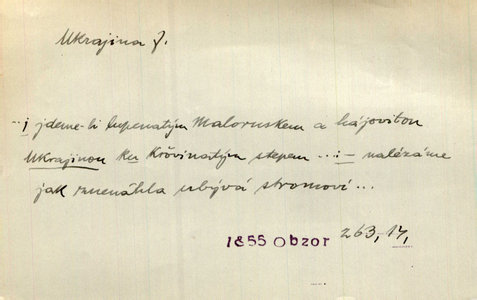 Ukrajina f.
...i jdeme-li lupenatým Maloruskem a hájovitou
Ukrajinou ku křovinatým stepem ...i – nalézáme
jak znenáhla ubývá stromoví ...
1855 Obzor 263, 17,